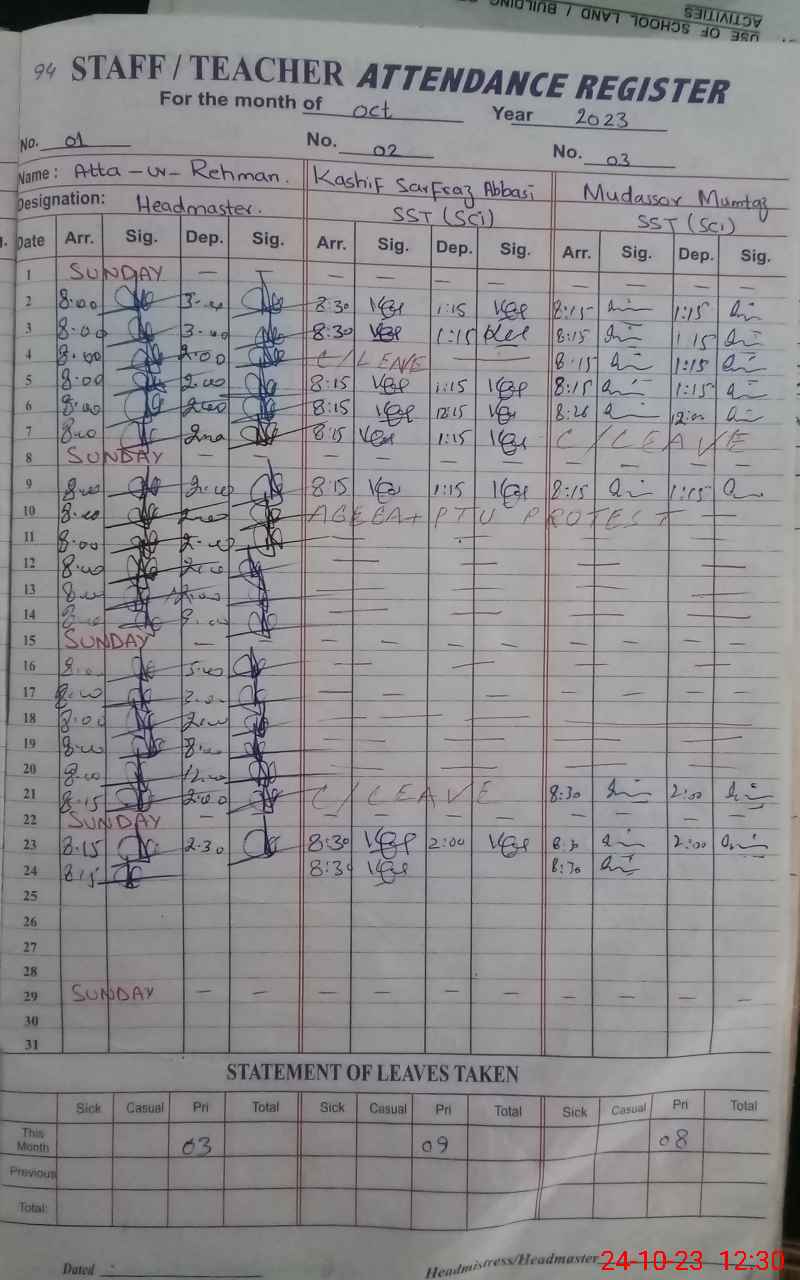 USE OF SCHOOL LAND / BUILDING
ACTIVITIES
94 STAFF / TEACHER ATTENDANCE REGISTER
For the month of Oct Year 2023
No. 01 No. 02 No. 03
Name: Atta-ur-Rehman. Kashif Sarfraz Abbasi Mudassar Mumtaz
Designation: Headmaster. SST (Sci) SST (Sci)
Date Arr. Sig. Dep. Sig. Arr. Sig. Dep. Sig. Arr. Sig. Dep. Sig.
1 SUNDAY — — — — — — — — —
2 8:00 8:30 1:15 8:15 1:15
3 8:00 8:30 1:15 8:15 1:15
4 8:00 2:00 C/LEAVE — — 8:15 1:15
5 8:00 2:00 8:15 1:15 8:15 1:15
6 8:00 2:00 8:15 12:15 8:26 12:00
7 8:15 1:15 C/LEAVE
8 SUNDAY — — — — — — — — — —
9 8:00 2:00 8:15 1:15 8:15 1:15
10 8:00 2:00 AGEGA+ PTU PROTEST —
11 8:00 2:00
12 8:00 2:00
13 8:00
14
15 SUNDAY — — — — — — — — — —
16
17 8:00 — — — — — — — —
18 8:00 2:00
19 8:00
20 8:00 12:00
21 8:15 2:00 C/LEAVE 8:30 2:00
22 SUNDAY — — — — — — — — — —
23 8:15 2:30 8:30 2:00 8:30 2:00
24 8:15 8:30 8:30
25
26
27
28
29 SUNDAY — — — — — — — — — —
30
31
STATEMENT OF LEAVES TAKEN
Sick Casual Pri Total Sick Casual Pri Total Sick Casual Pri Total
This Month 03 09 08
Previous
Total:
Dated Headmistress/Headmaster
24-10-23 12:30